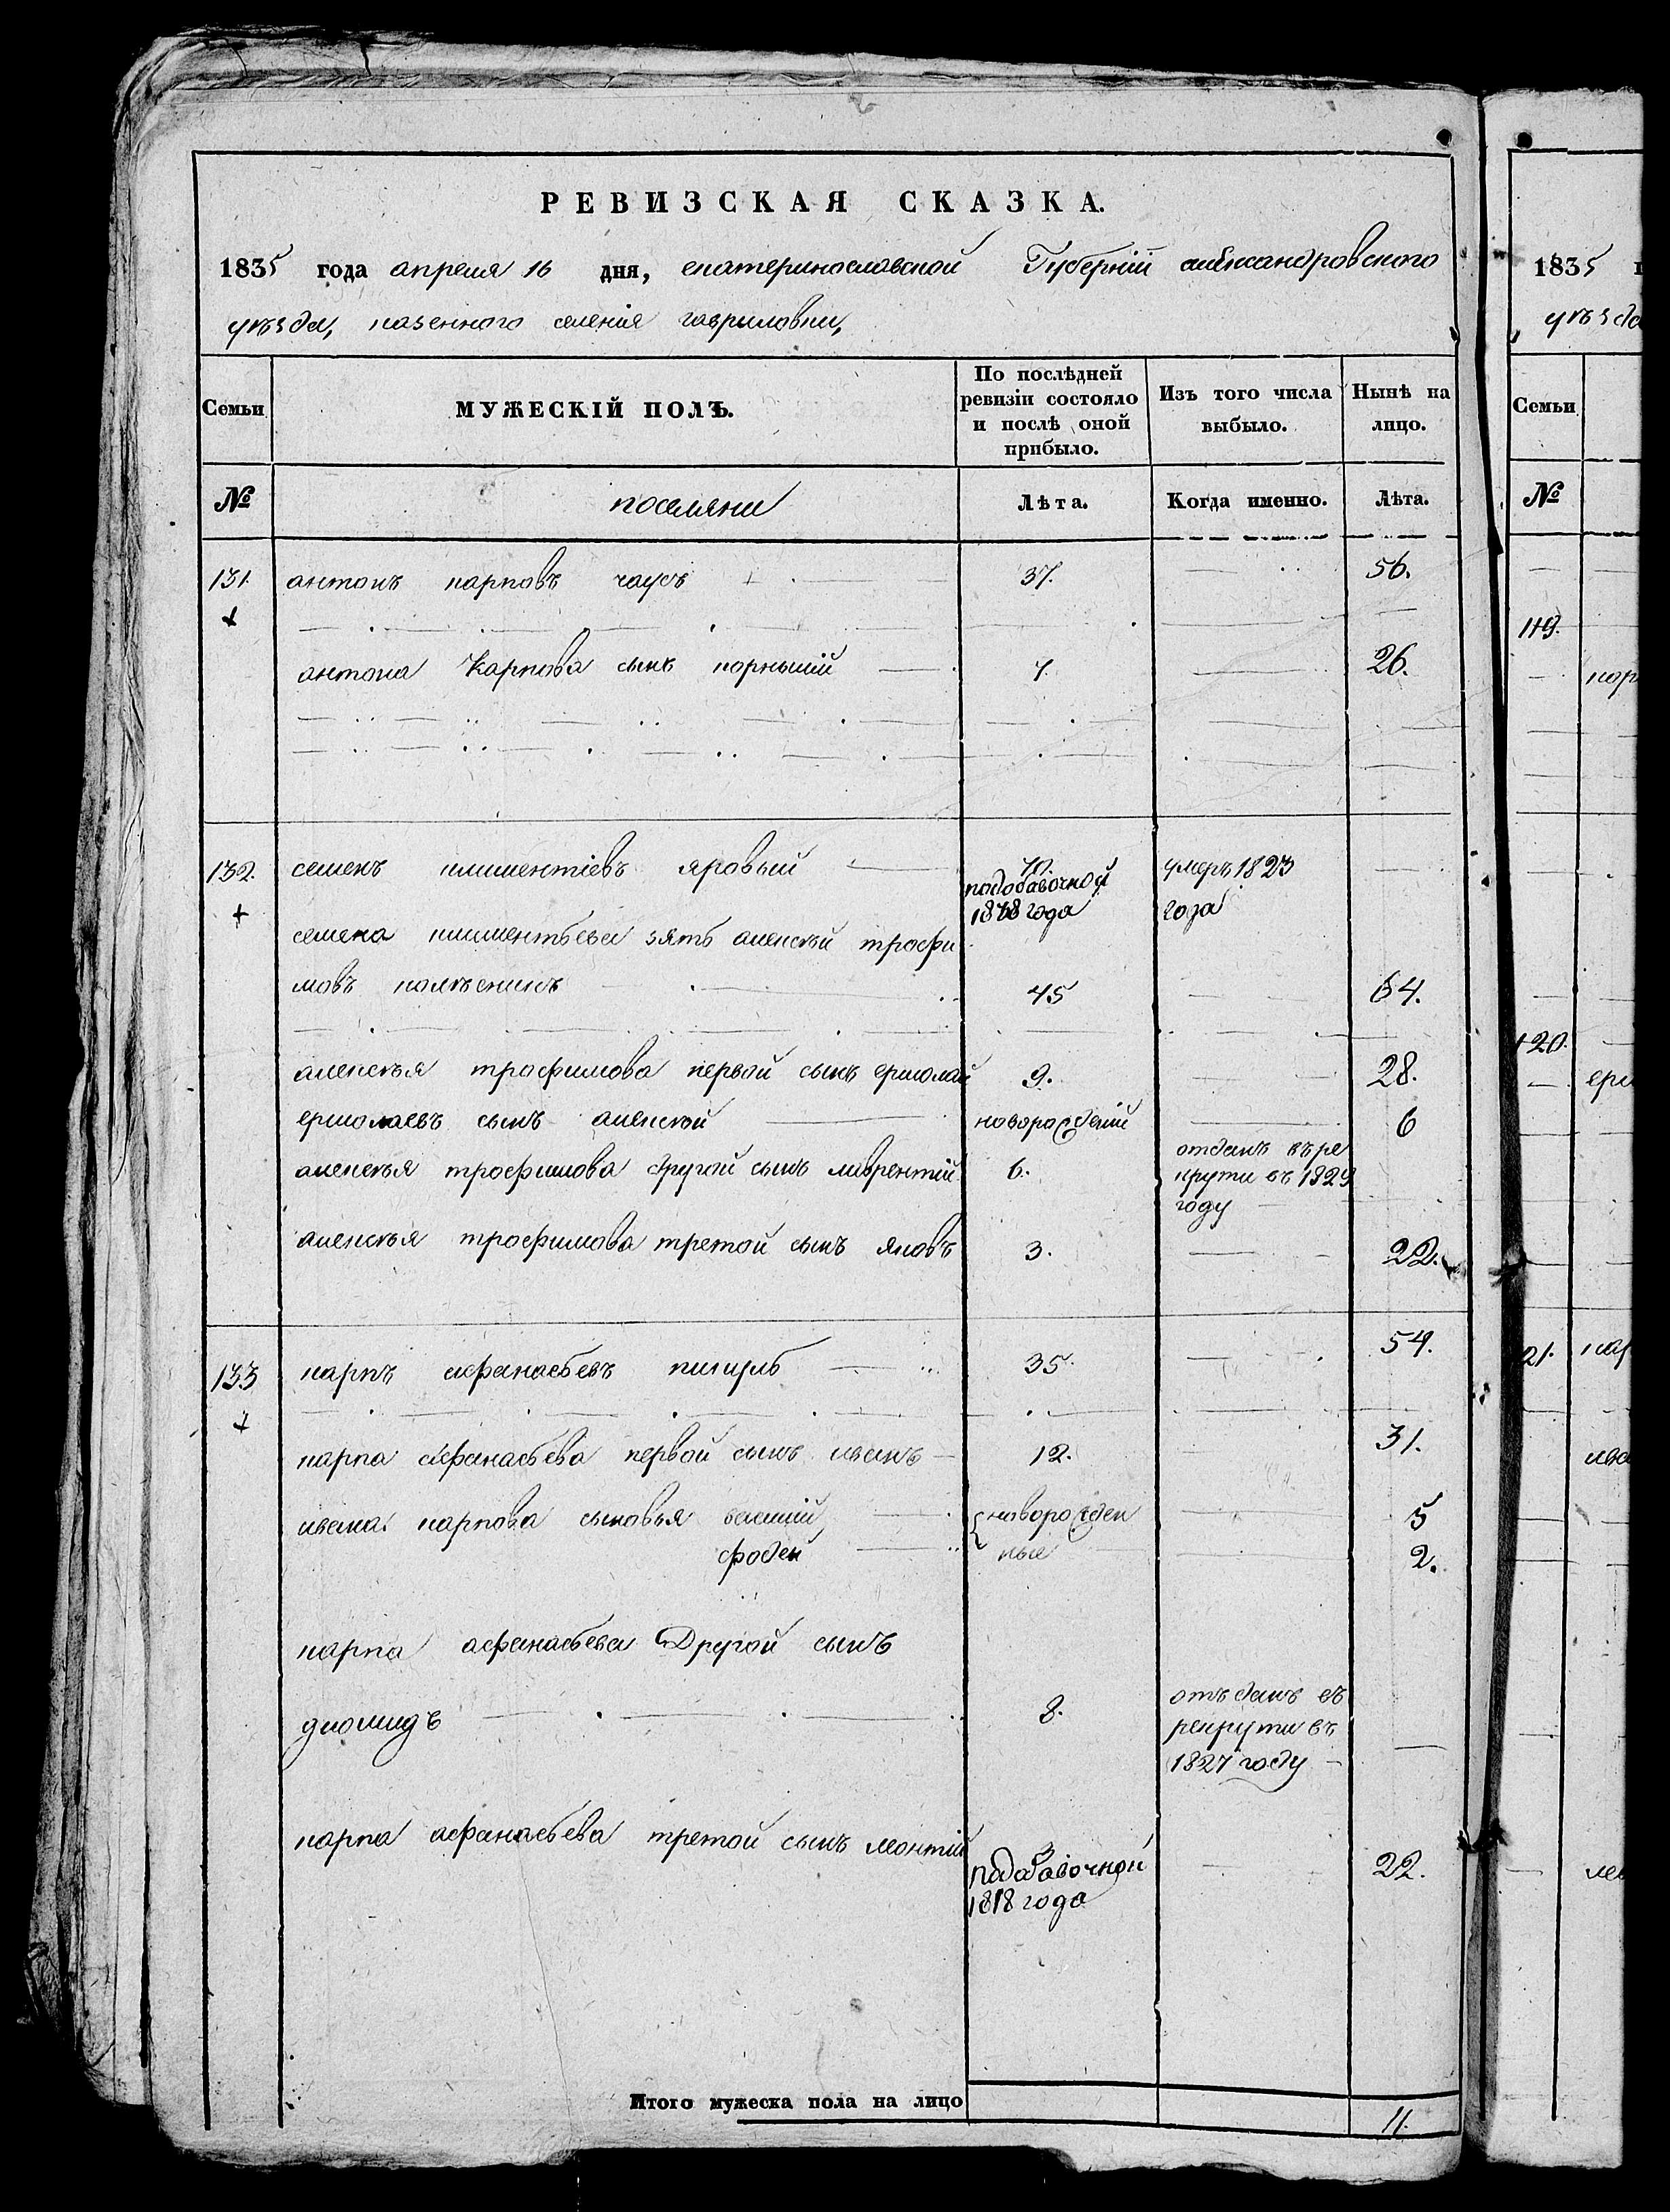 РЕВИЗСКАЯ СКАЗКА.
1835 года апреля 16 дня, екатеринославской Губерніи александровского
уѣзда, казенного селенія гавриловки,
Семьи
МУЖЕСКІЙ ПОЛЪ.
По послѣдней ревизіи состояло и послѣ оной прибыло.
Изъ того числа выбыло.
Нынѣ на лицо.
№
поселяне
Лѣта.
Когда именно.
Лѣта.
131. антонъ карповъ чаусъ 37. 56.
антона Карпова сынъ корнилій 7. 26.
132. семенъ климентіевъ яровый 70. умеръ 1823
подобавочной года
1818 года
семена климентьева зять алексѣй трофи
мовъ 45 64.
алексѣя трофимова первой сынъ ермолай 9. 28.
ермолаевъ сынъ алексѣй новорожденій 6
алексѣя трофимова другой сынъ лаврентій 6. отданъ въ ре
крути въ 1829
году
алексѣя трофимова третой сынъ яковъ 3. 22.
133 карпъ афанасьевъ 35. 54.
карпа афанасьева первой сынъ иванъ 12. 31.
ивана карпова сыновья василий новорожден 5
фодей ные 2.
карпа афанасьева Другой сынъ
диомидъ 8. отъданъ въ
рекрути въ
1827 году
карпа афанасьева третой сынъ леонтій 3 22.
подобавочной
1818 года
Итого мужеска пола на лицо 11.
1835
уѣзда
Семьи
№
119.
кор
120.
ерм
21. кар
ива
лео